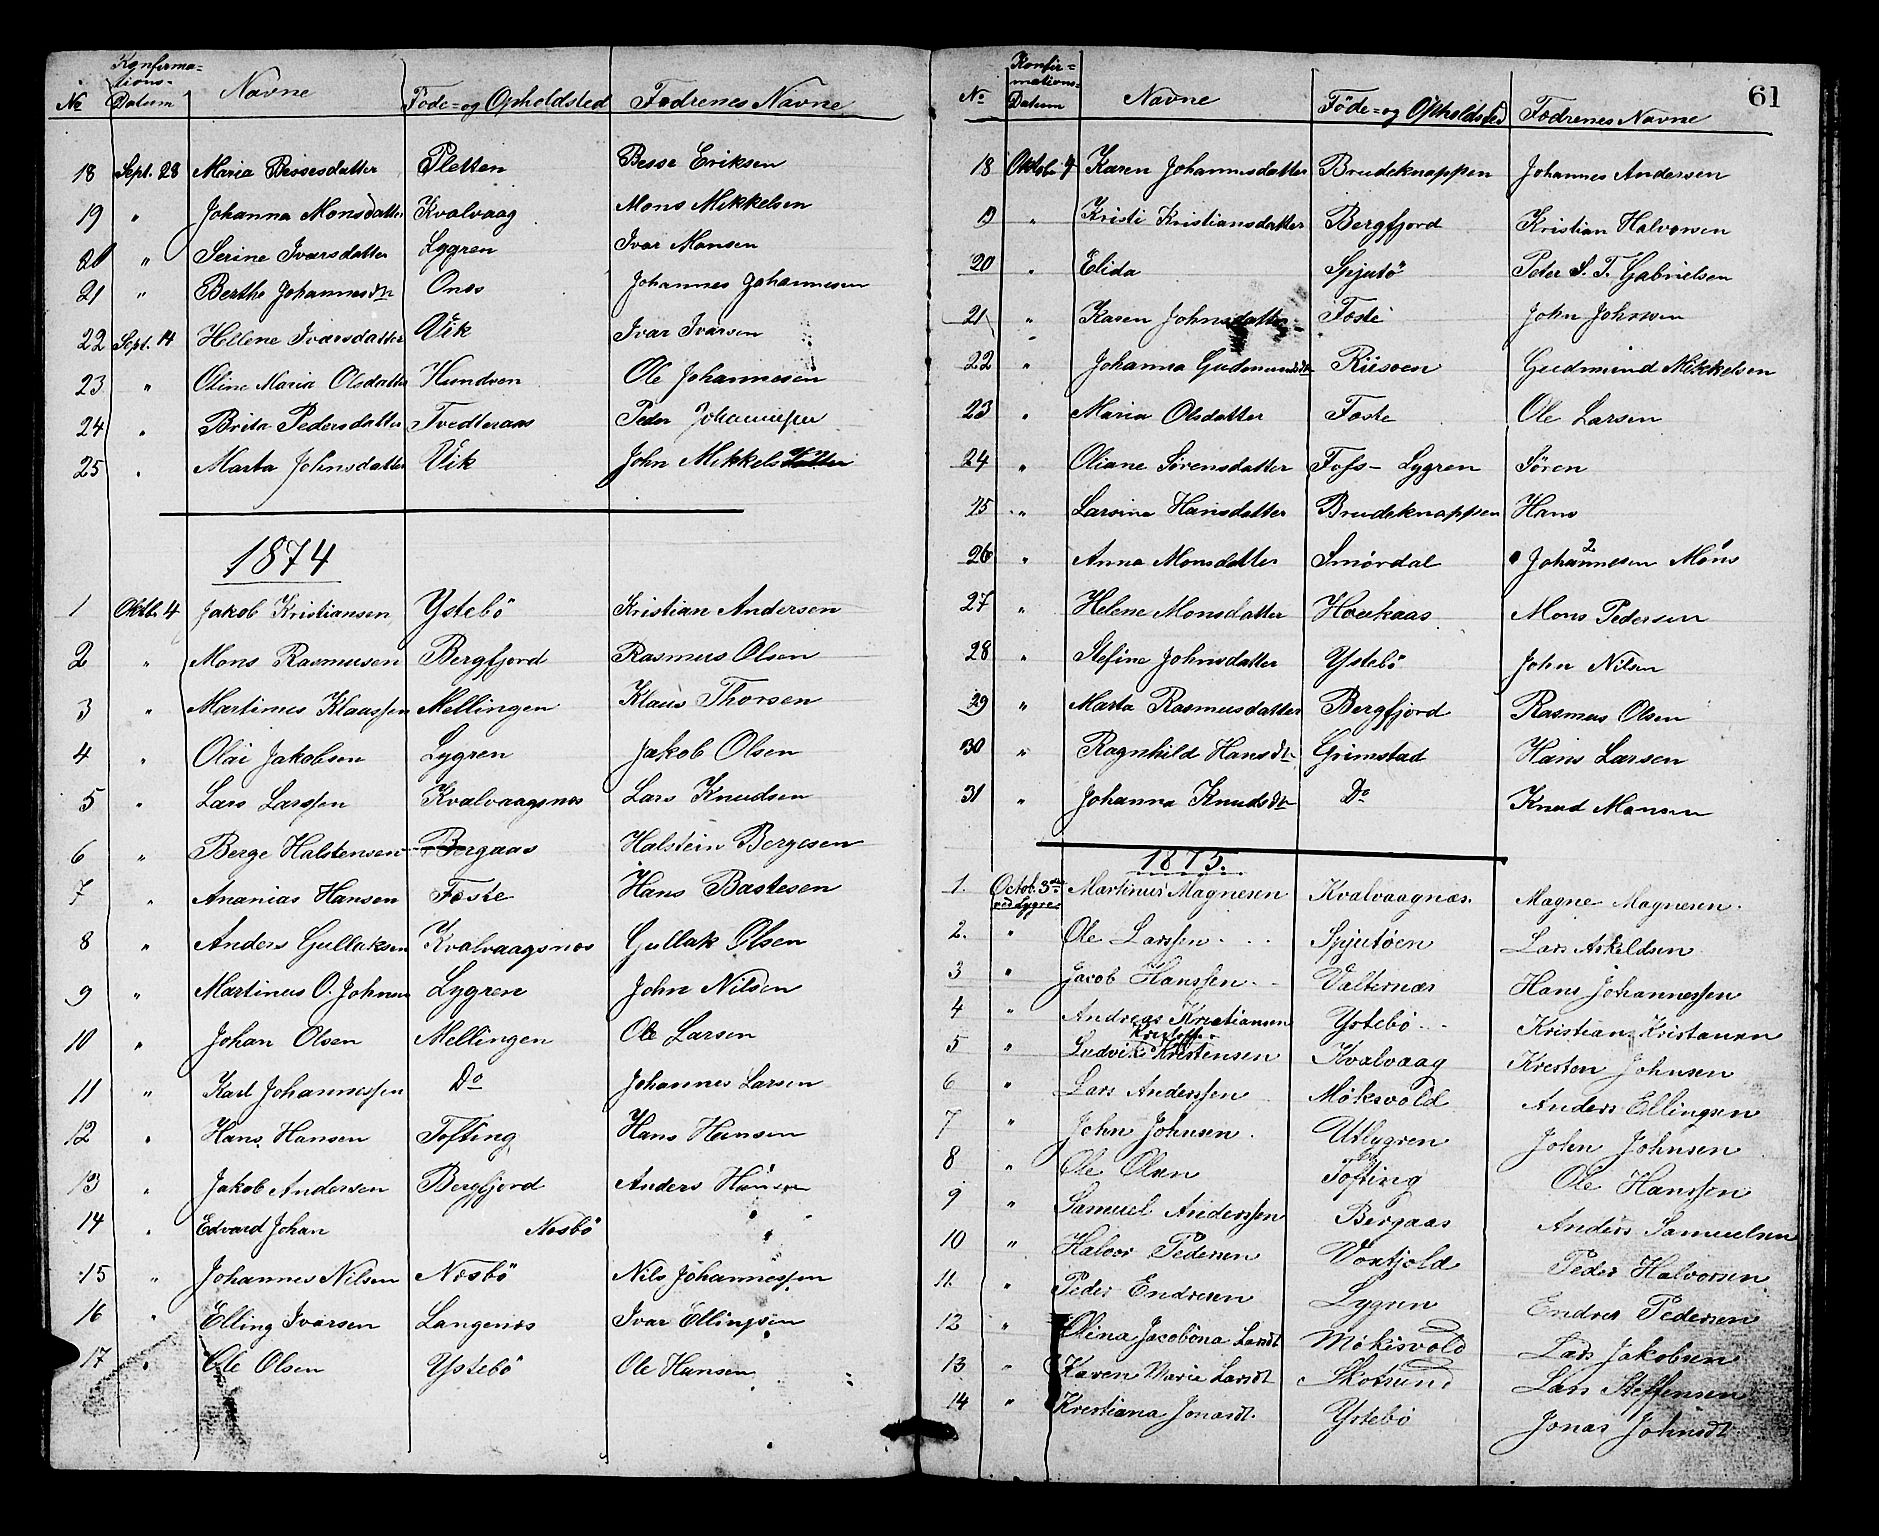 Konfirma=
tions=
No Datum Navne Føde= og Opholdsted Fædrenes Navne
18 Sept. 28 Maria Bessesdatter Sletten Besse Eriksen
19 " Johanna Monsdatter Kvalvaag Mons Mikkelsen
20 " Serine Ivarsdatter Lygren Ivar Monsen
21 " Berthe Johannesdtr Onæs Johannes Johannesen
22 Sept. 14 Helene Ivarsdatter Vik Ivar Ivarsen
23 " Oline Maria Olsdatter Hundven Ole Johannesen
24 " Brita Pedersdatter Tvedteraas Peder Johannessen
25 " Marta Johnsdatter Vik John Mikkels
1874
1 Oktb. 4 Jakob Kristiansen Ystebö Kristian Andersen
2 " Mons Rasmusen Bergfjord Rasmus Olsen
3 " Martinus Klaassen Mellingen Klaus Thorsen
4 " Olai Jakobsen Lygren Jakob Olsen
5 " Lars Larssen Kvalvaagsnæs Lars Knudsen
6 " Berge Halstensen Bergaas Halstein Bergesen
7 " Ananias Hansen Foste Hans Bastesen
8 " Anders Gullaksen Kvalvaagsnæs Gullak Olsen
9 " Martinus O. Johnsen Lygren John Nilsen
10 " Johan Olsen Mellingen Ole Larsen
11 " Karl Johannessen Do Johannes Larsen
12 " Hans Hansen Tofting Hans Hansen
13 " Jakob Andersen Bergfjord Anders Hansen
14 " Edvard Johan Næsbö " "
15 " Johannes Nilsen Næsbö Nils Johannessen
16 " Elling Ivarsen Langenæs Ivar Ellingsen
17 " Ole Olsen Ystebö Ole Hansen
61
Konfir=
mations=
No Datum Navne Føde= og Opholdsted Fædrenes Navne
18 Oktob. 4 Karen Johannesdatter Brudeknappen Johannes Andersen
19 " Kristi Kristiansdatter Bergfjord Kristian Halvorsen
20 " Elida Spjutö Peder S. T. Gabrielsen
21 " Karen Johnsdatter Foste John Johnsen
22 " Johanna Gudmundsdtr Riisoen Gudmund Mikkelsen
23 " Maria Olsdatter Foste Ole Larsen
24 " Oliane Sörensdatter Foss-Lygren Sören
25 " Larsine Hansdatter Brudeknappen Hans
26 " Anna Monsdatter Smørdal Johannesen 2 Mons 1
27 " Helene Monsdatter Houkaas Mons Pedersen
28 " Stefine Johnsdatter Ystebö John Nilsen
29 " Marta Rasmusdatter Bergfjord Rasmus Olsen
30 " Ragnhild Hansdtr Grimstad Hans Larsen
31 " Johanna Knudsdtr Do Knud Monsen
1875.
1. Octob. 3die Martinus Magnesen Kvalvaagnæs Magne Magnesen.
ved Lygre
2. " Ole Larssen Spjutøen Lars Askeldsen
3 " Jacob Hanssen Valternæs Hans Johannessen
4 " Andreas Kristiansen Ystebø Kristian Kristansen
5 " Ludvik Kristensen Kvalvaag Kresten Johnsen
6 " Lars Anderssen Møksvold Anders Ellingsen
7 " John Johnsen. Utlygren John Johnsen
8 " Ole Olsen Tofting Ole Hanssen
9 " Samuel Anderssen Bergaas Anders Samuelsen
10 " Halvor Pedersen Voxtjold Peder Halvorsen
11. " Peder Endresen Lygren Endres Pedersen
12 " Olina Jacobina Larsdt Møksvold Lars Jakobsen
13 " Karen Marie Larsdt Skotsund Lars Steffensen
14 " Krestiana Jonasdt. Ystebø Jonas Johnsdt